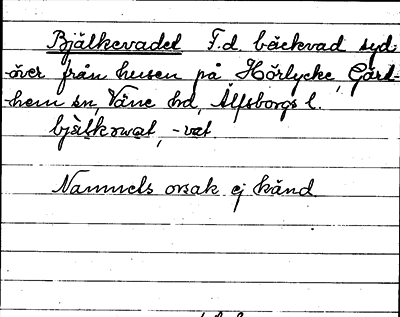 Bjälkevadet F.d. bäckvad syd-
över från husen på Hörlycke, Gärd-
hem sn, Väne hd, Älfsborgs l.
bjälkewat, -vat
Namnets orsak ej känd